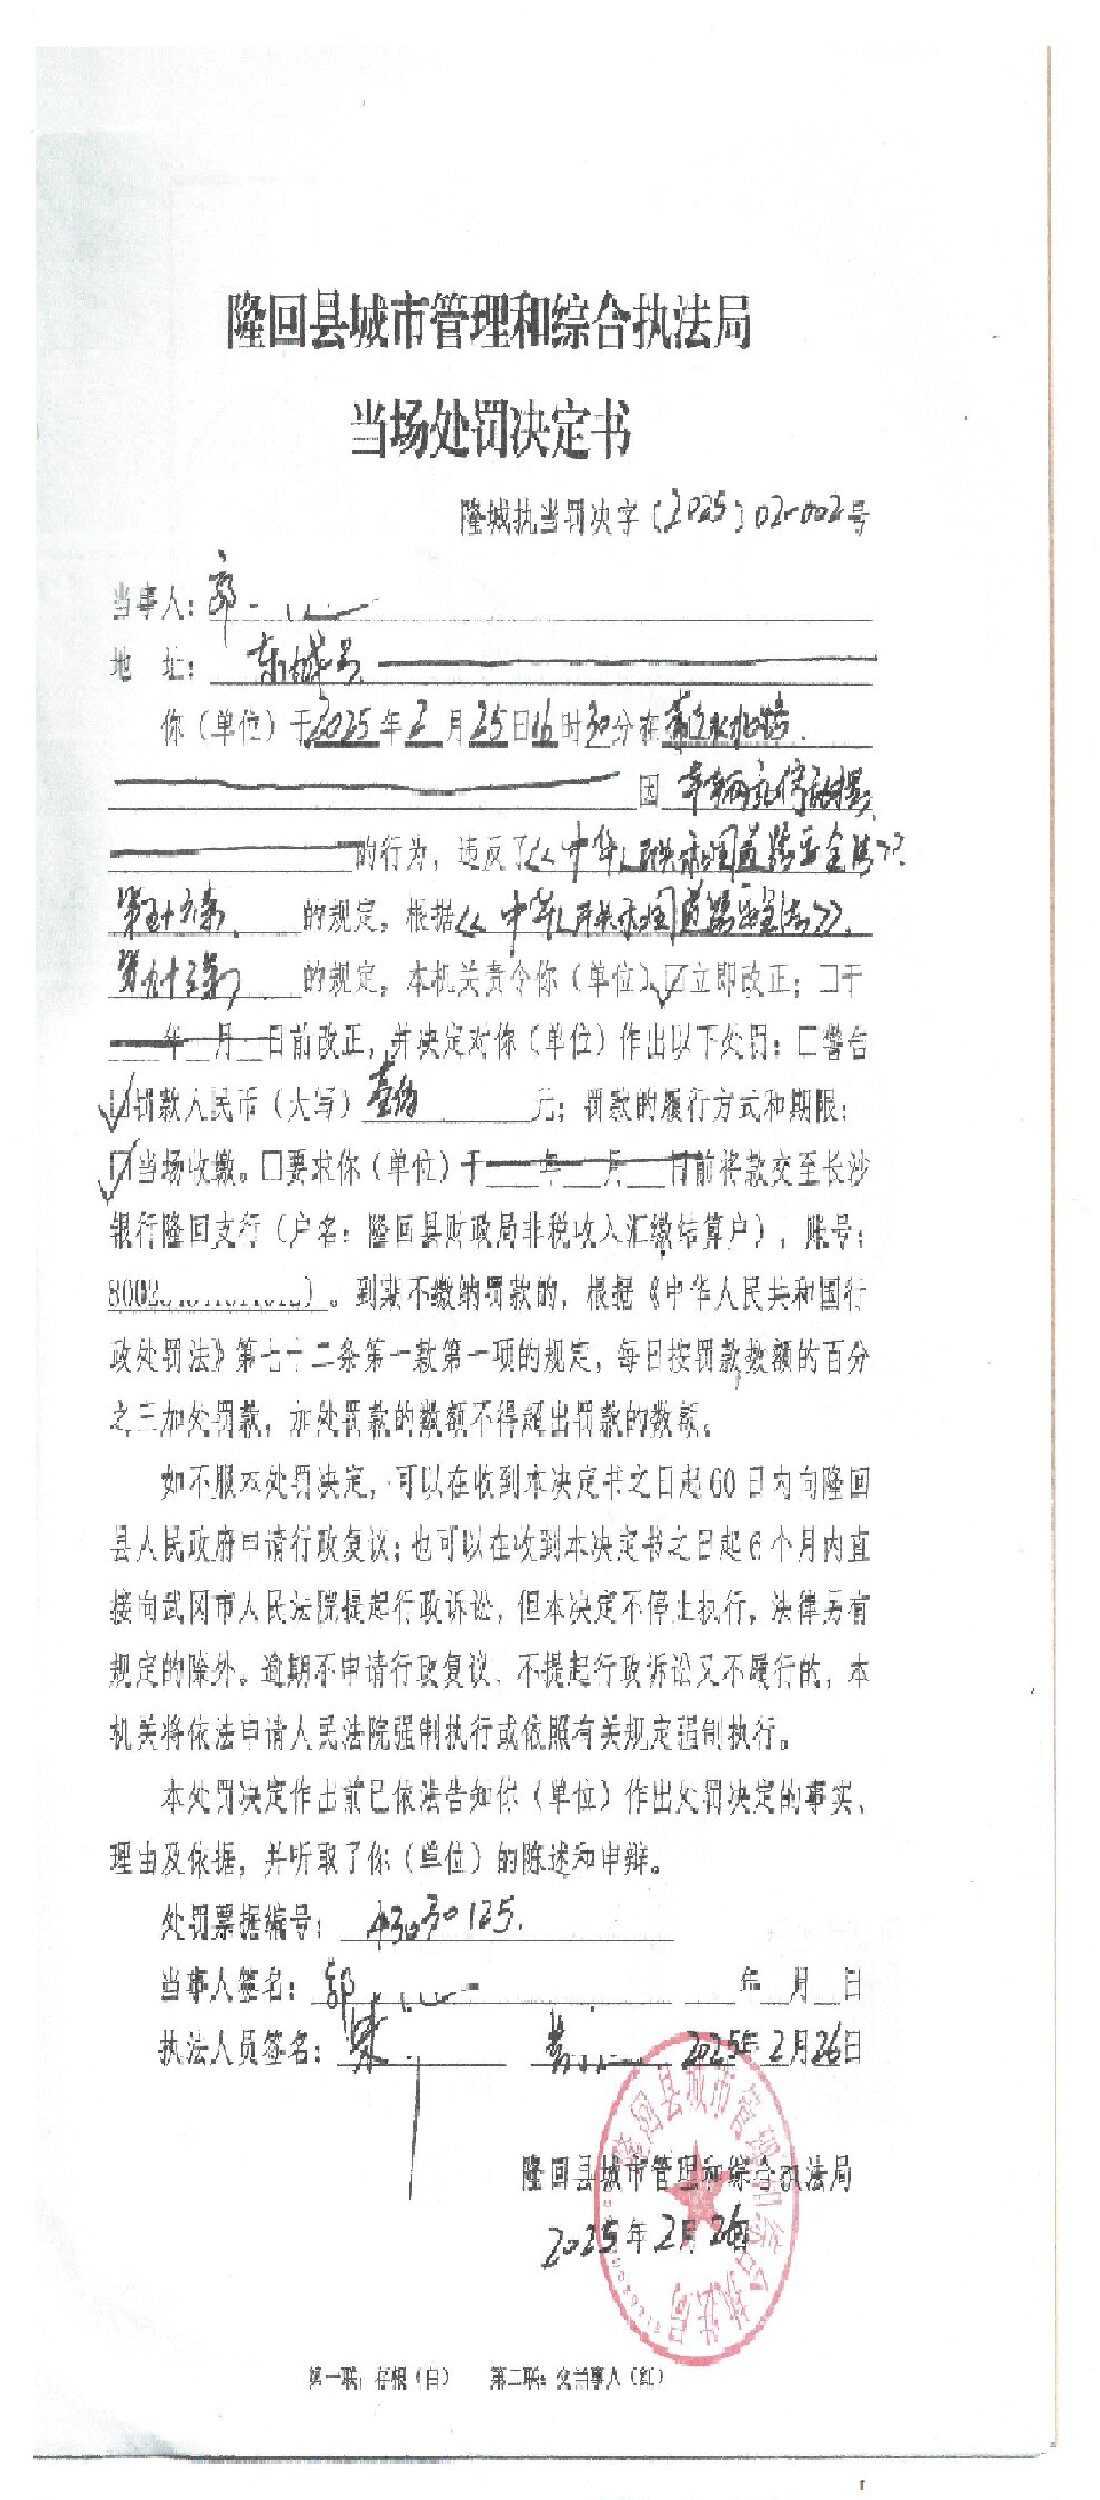 隆回县城市管理和综合执法局
当场处罚决定书
隆城执当罚决字〔2025〕02-002号
当事人：郭
地 址：东城
你（单位）于2025年2月25日16时30分在
因
的行为，违反了《中华人民共和国道路安全法》
第五十六条 的规定，根据《中华人民共和国道路安全法》
第九十三条 的规定，本机关责令你（单位）☑立即改正；□于
年 月 日前改正，并决定对你（单位）作出以下处罚：□警告
☑罚款人民币（大写）壹佰 元；罚款的履行方式和期限：
☑当场收缴。□要求你（单位）于 年 月 日前将款交至长沙
银行隆回支行（户名：隆回县财政局非税收入汇缴结算户），账号：
8002 ）。到期不缴纳罚款的，根据《中华人民共和国行
政处罚法》第七十二条第一款第一项的规定，每日按罚款数额的百分
之三加处罚款，加处罚款的数额不得超出罚款的数额。
如不服本处罚决定，可以在收到本决定书之日起60日内向隆回
县人民政府申请行政复议；也可以在收到本决定书之日起6个月内直
接向武冈市人民法院提起行政诉讼，但本决定不停止执行，法律另有
规定的除外。逾期不申请行政复议、不提起行政诉讼又不履行的，本
机关将依法申请人民法院强制执行或依照有关规定强制执行。
本处罚决定作出前已依法告知你（单位）作出处罚决定的事实、
理由及依据，并听取了你（单位）的陈述和申辩。
处罚票据编号：43030125.
当事人签名：郭 年 月 日
执法人员签名： 2025年2月26日
隆回县城市管理和综合执法局
2025年2月26日
隆回县城市管理和综合执法局
第一联：存根（白） 第二联：交当事人（红）
1